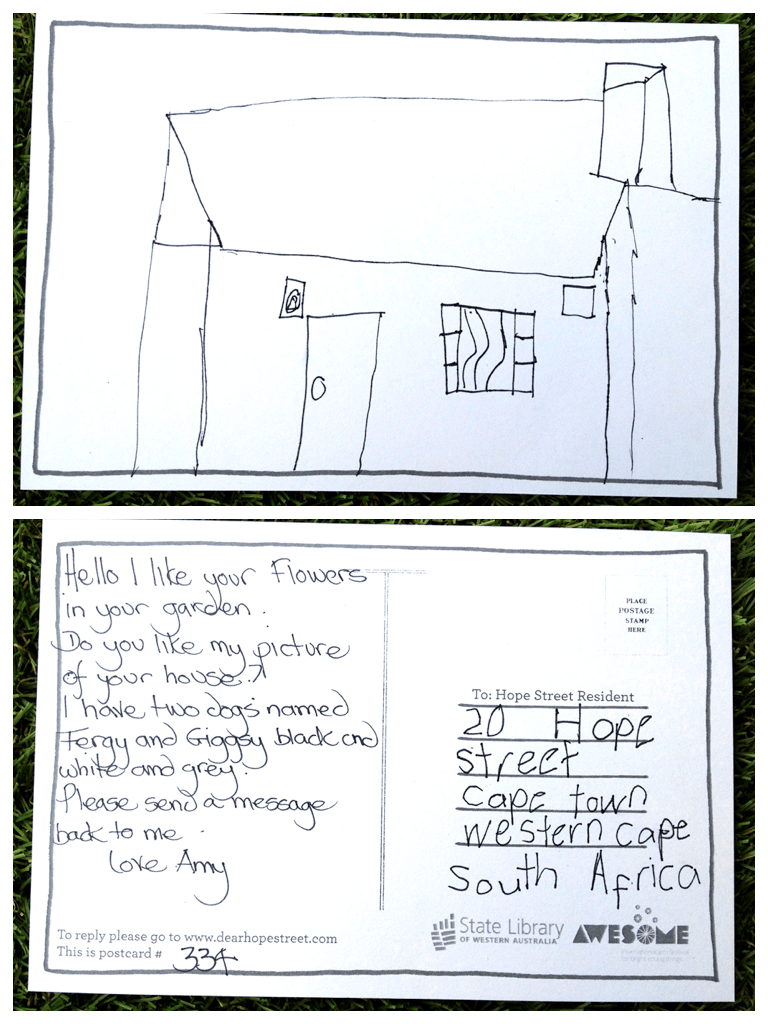 Hello I like your Flowers
in your garden.
Do you like my picture
of your house?
I have two dogs named
Fergy and Giggsy black and
white and grey.
Please send a message
back to me.
Love Amy
To reply please go to www.dearhopestreet.com
This is postcard # 334
PLACE
POSTAGE
STAMP
HERE
To: Hope Street Resident
20 Hope
street
cape town
western cape
South Africa
State Library
OF WESTERN AUSTRALIA
AWESOME